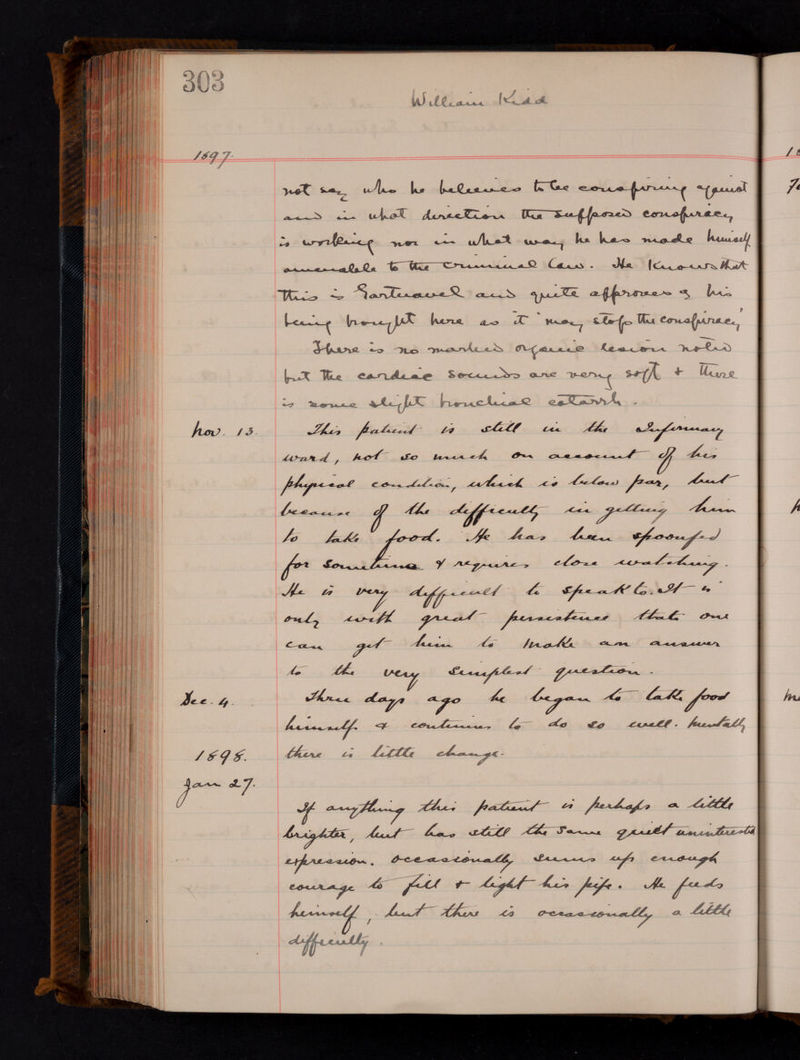 303
William Kidd
1897.
not say who he believes to be conspiring against
and in what direction the supposed conspiracy
is working nor in what way he has made himself
amenable to the criminal law. He knows that
this is Gartnavel and quite approves of his
being brought here as it "may stop the conspiracy"
There is no marked organic lesion noted
but the cardiac sounds are very soft + there
is some slight bronchial catarrh.
Nov. 13. This patient is still in the Infirmary
ward, not so much on account of his
physical condition, which is below par, but
because of the difficulty in getting him
to take food. He has been spoonfed
for sometime & requires close watching.
He is very difficult to speak to. It is
only with great persistence that one
can get him to make an answer
to the very simplest question.
Dec. 4. Three days ago he began to take food
himself & continues to do so well. Mentally
1898. there is little change.
Jan 27.
If anything this patient is perhaps a little
brighter, but has still the same quiet uninterested
expression. Occasionally sums up enough
courage to fill + light his pipe. He feeds
himself, but there is occasionally a little
difficulty.